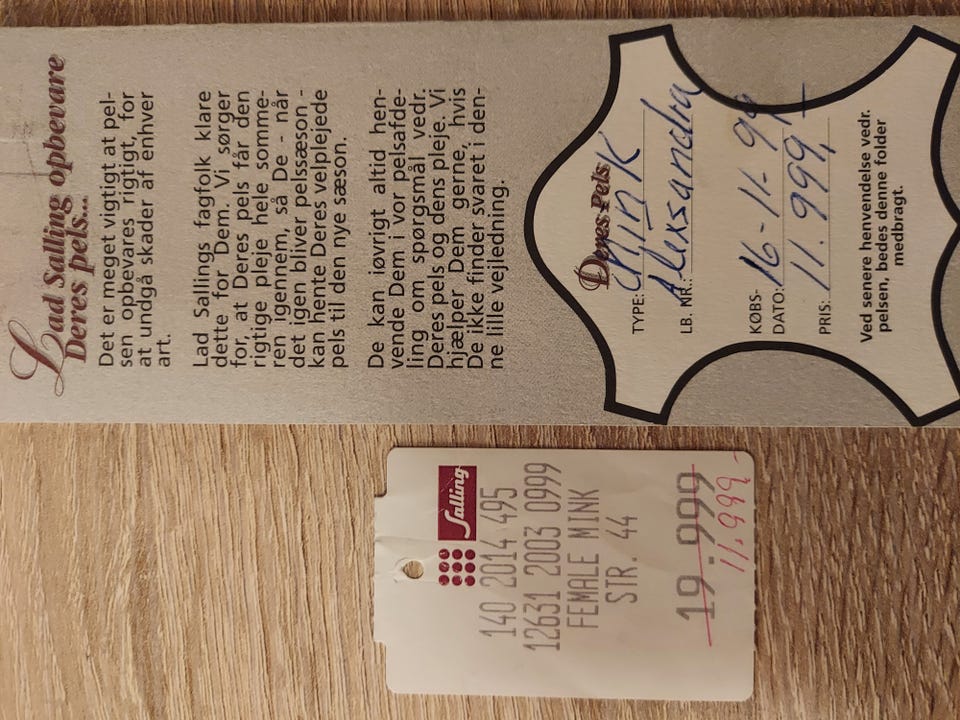 Lad Salling opbevare
Deres pels...
Det er meget vigtigt at pel-
sen opbevares rigtigt, for
at undgå skader af enhver
art.
Lad Sallings fagfolk klare
dette for Dem. Vi sørger
for, at Deres pels får den
rigtige pleje hele somme-
ren igennem, så De - når
det igen bliver pelssæson -
kan hente Deres velplejede
pels til den nye sæson.
De kan iøvrigt altid hen-
vende Dem i vor pelsafde-
ling om spørgsmål vedr.
Deres pels og dens pleje. Vi
hjælper Dem gerne, hvis
De ikke finder svaret i den-
ne lille vejledning.
Deres Pels
TYPE: Mink
LB. NR.: Aleksandra
KØBS-
DATO: 16-11-99
PRIS: 11.999,-
Ved senere henvendelse vedr.
pelsen, bedes denne folder
medbragt.
Salling
140 2014 495
12631 2003 0999
FEMALE MINK
STR. 44
19.999
11.999-